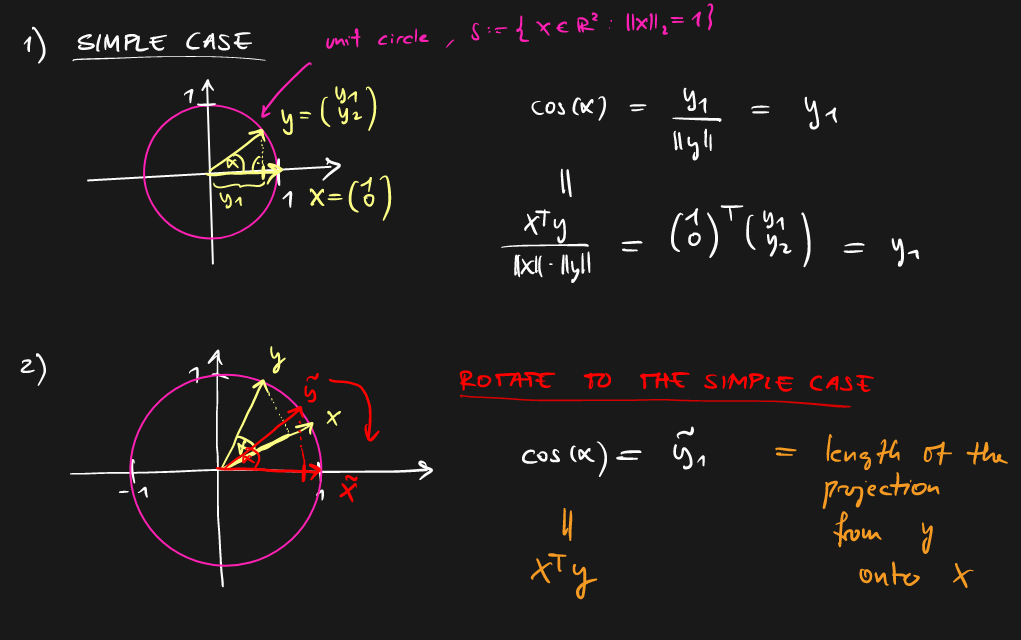 1) SIMPLE CASE
unit circle, S := { x ∈ ℝ² : ||x||₂ = 1 }
1
y = (y₁ y₂)
α
y₁
1
x = (1 0)
cos(α) = y₁ / ||y|| = y₁
||
xᵀy / ||x|| · ||y|| = (1 0)ᵀ (y₁ y₂) = y₁
2)
1
y
ỹ
x
α
α
-1
1
x̃
ROTATE TO THE SIMPLE CASE
cos(α) = ỹ₁ = length of the
projection
from y
onto x
||
xᵀy